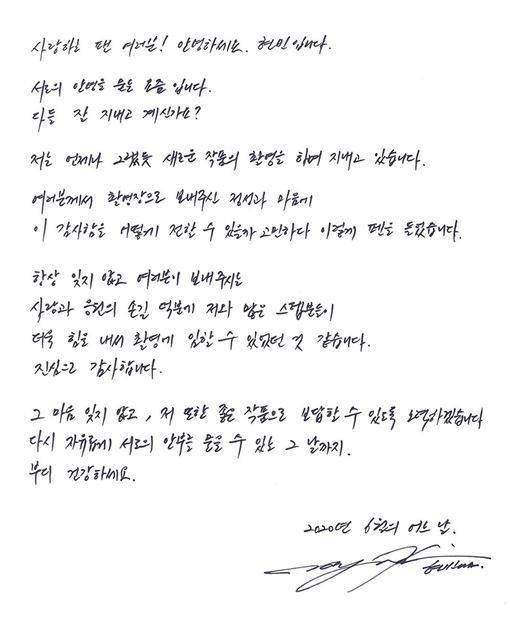 사랑하는 팬 여러분! 안녕하세요. 현빈입니다.
서로의 안녕을 묻는 요즘 입니다.
다들 잘 지내고 계신가요?
저는 언제나 그랬듯 새로운 작품의 촬영을 하며 지내고 있습니다.
여러분께서 촬영장으로 보내주신 정성과 마음에
이 감사함을 어떻게 전할 수 있을까 고민하다 이렇게 펜을 들었습니다.
항상 잊지 않고 여러분이 보내주시는
사랑과 응원의 손길 덕분에 저와 많은 스텝분들이
더욱 힘을 내서 촬영에 임할 수 있었던 것 같습니다.
진심으로 감사합니다.
그 마음 잊지 않고, 저 또한 좋은 작품으로 보답할 수 있도록 노력하겠습니다
다시 자유롭게 서로의 안부를 물을 수 있는 그 날까지.
부디 건강하세요.
2020년 6월의 어느 날.